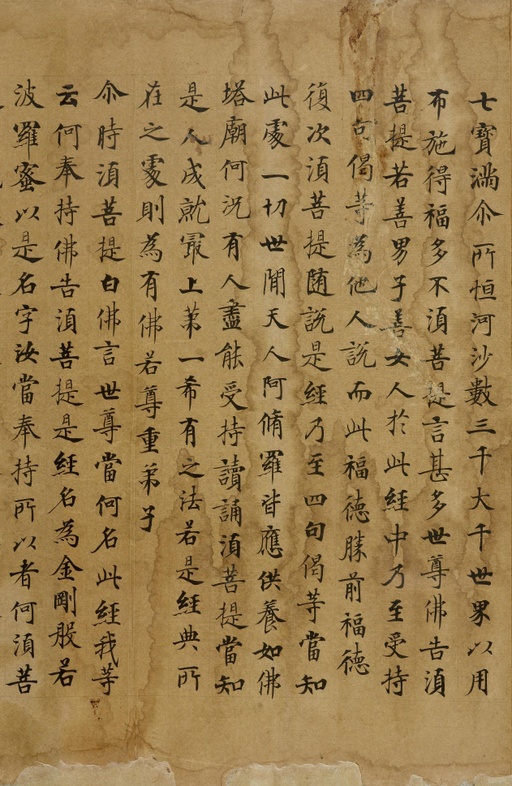 七寶滿尒所恒河沙數三千大千世界以用
布施得福多不湏菩提言甚多世尊佛告湏
菩提若善男子善女人於此經中乃至受持
四句偈等為他人說而此福德勝前福德
復次湏菩提随說是經乃至四句偈等當知
此處一切世間天人阿脩羅皆應供養如佛
塔廟何況有人盡能受持讀誦湏菩提當知
是人成就㝡上苐一希有之法若是經典所
在之處則為有佛若尊重弟子
尒時湏菩提白佛言世尊當何名此經我等
云何奉持佛告湏菩提是經名為金剛般若
波羅蜜以是名字汝當奉持所以者何湏菩